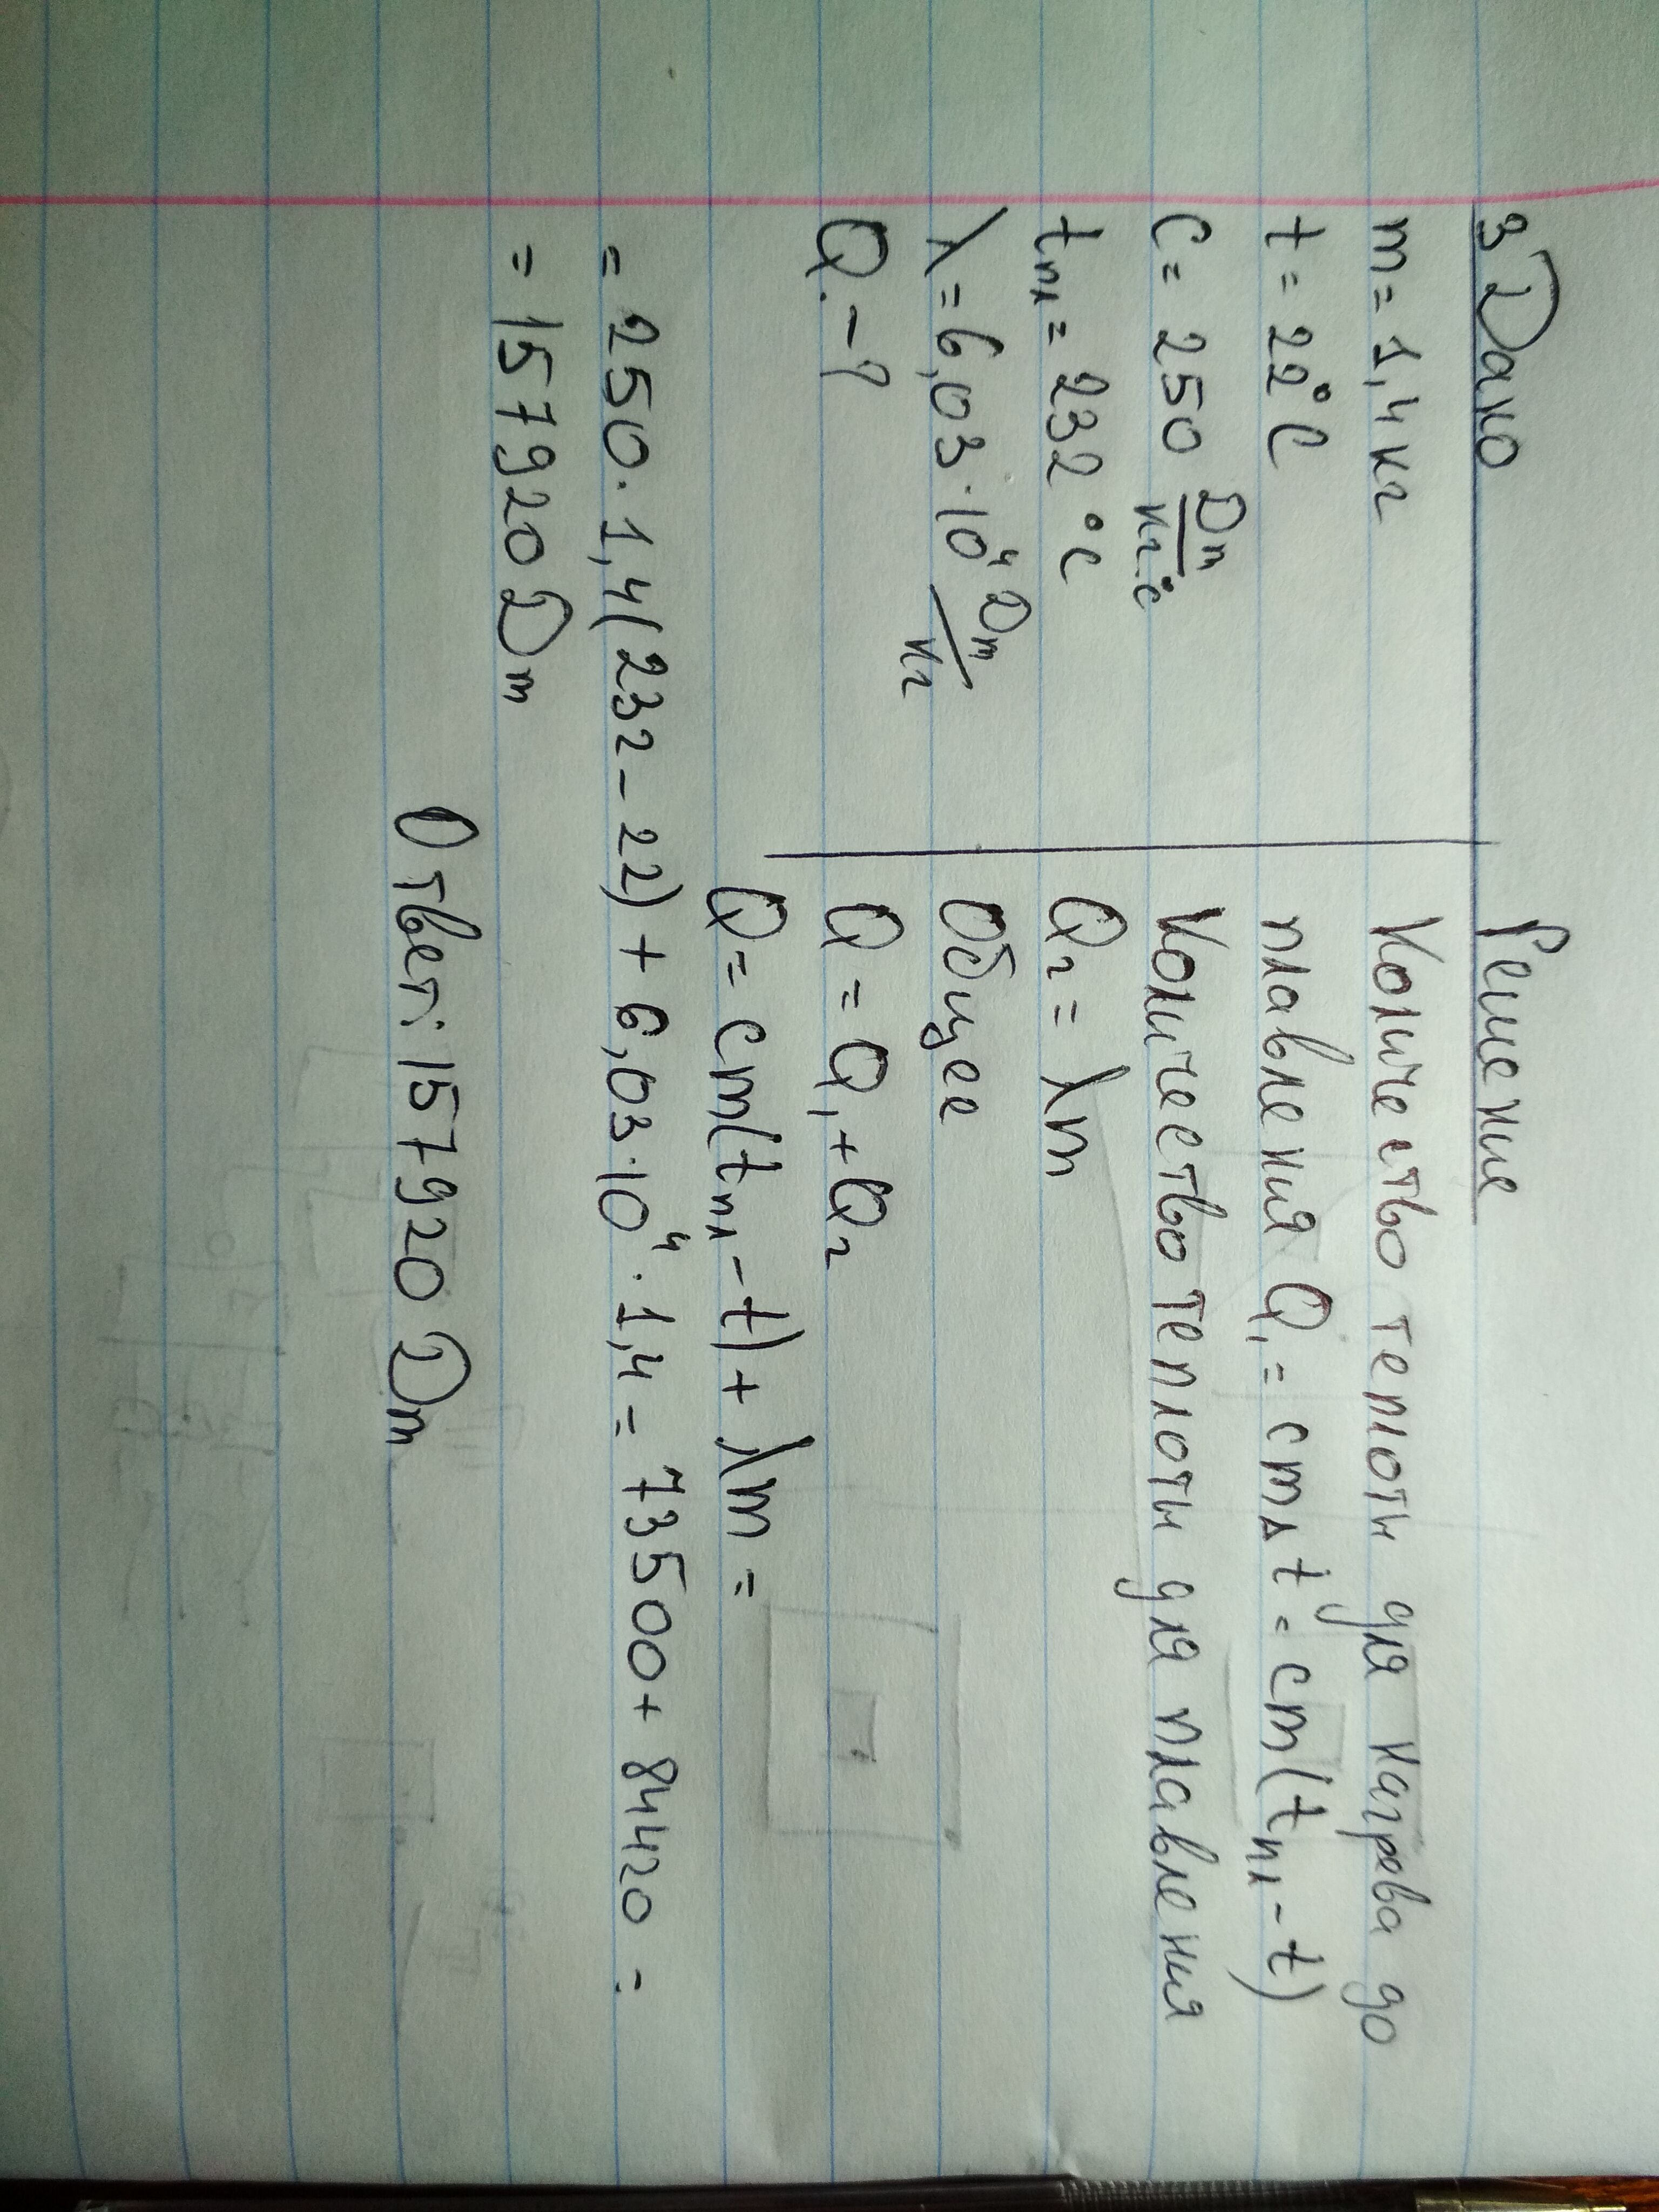 3 Дано
Решение
m = 1,4 кг
t = 22°C
C = 250 Dm/кг·°C
tпл = 232 °C
λ = 6,03·10⁴ Dm/кг
Q - ?
Количество теплоты для нагрева до
плавления Q₁ = cmΔt = cm(tпл - t)
Количество теплоты для плавления
Q₂ = λm
Общее
Q = Q₁ + Q₂
Q = cm(tпл - t) + λm =
= 250 · 1,4(232 - 22) + 6,03·10⁴ · 1,4 = 73500 + 84420 =
= 157920 Dm
Ответ: 157920 Dm